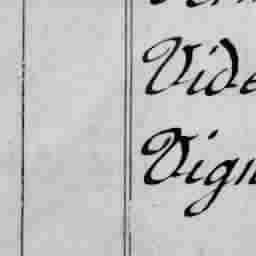 Vide
Vign